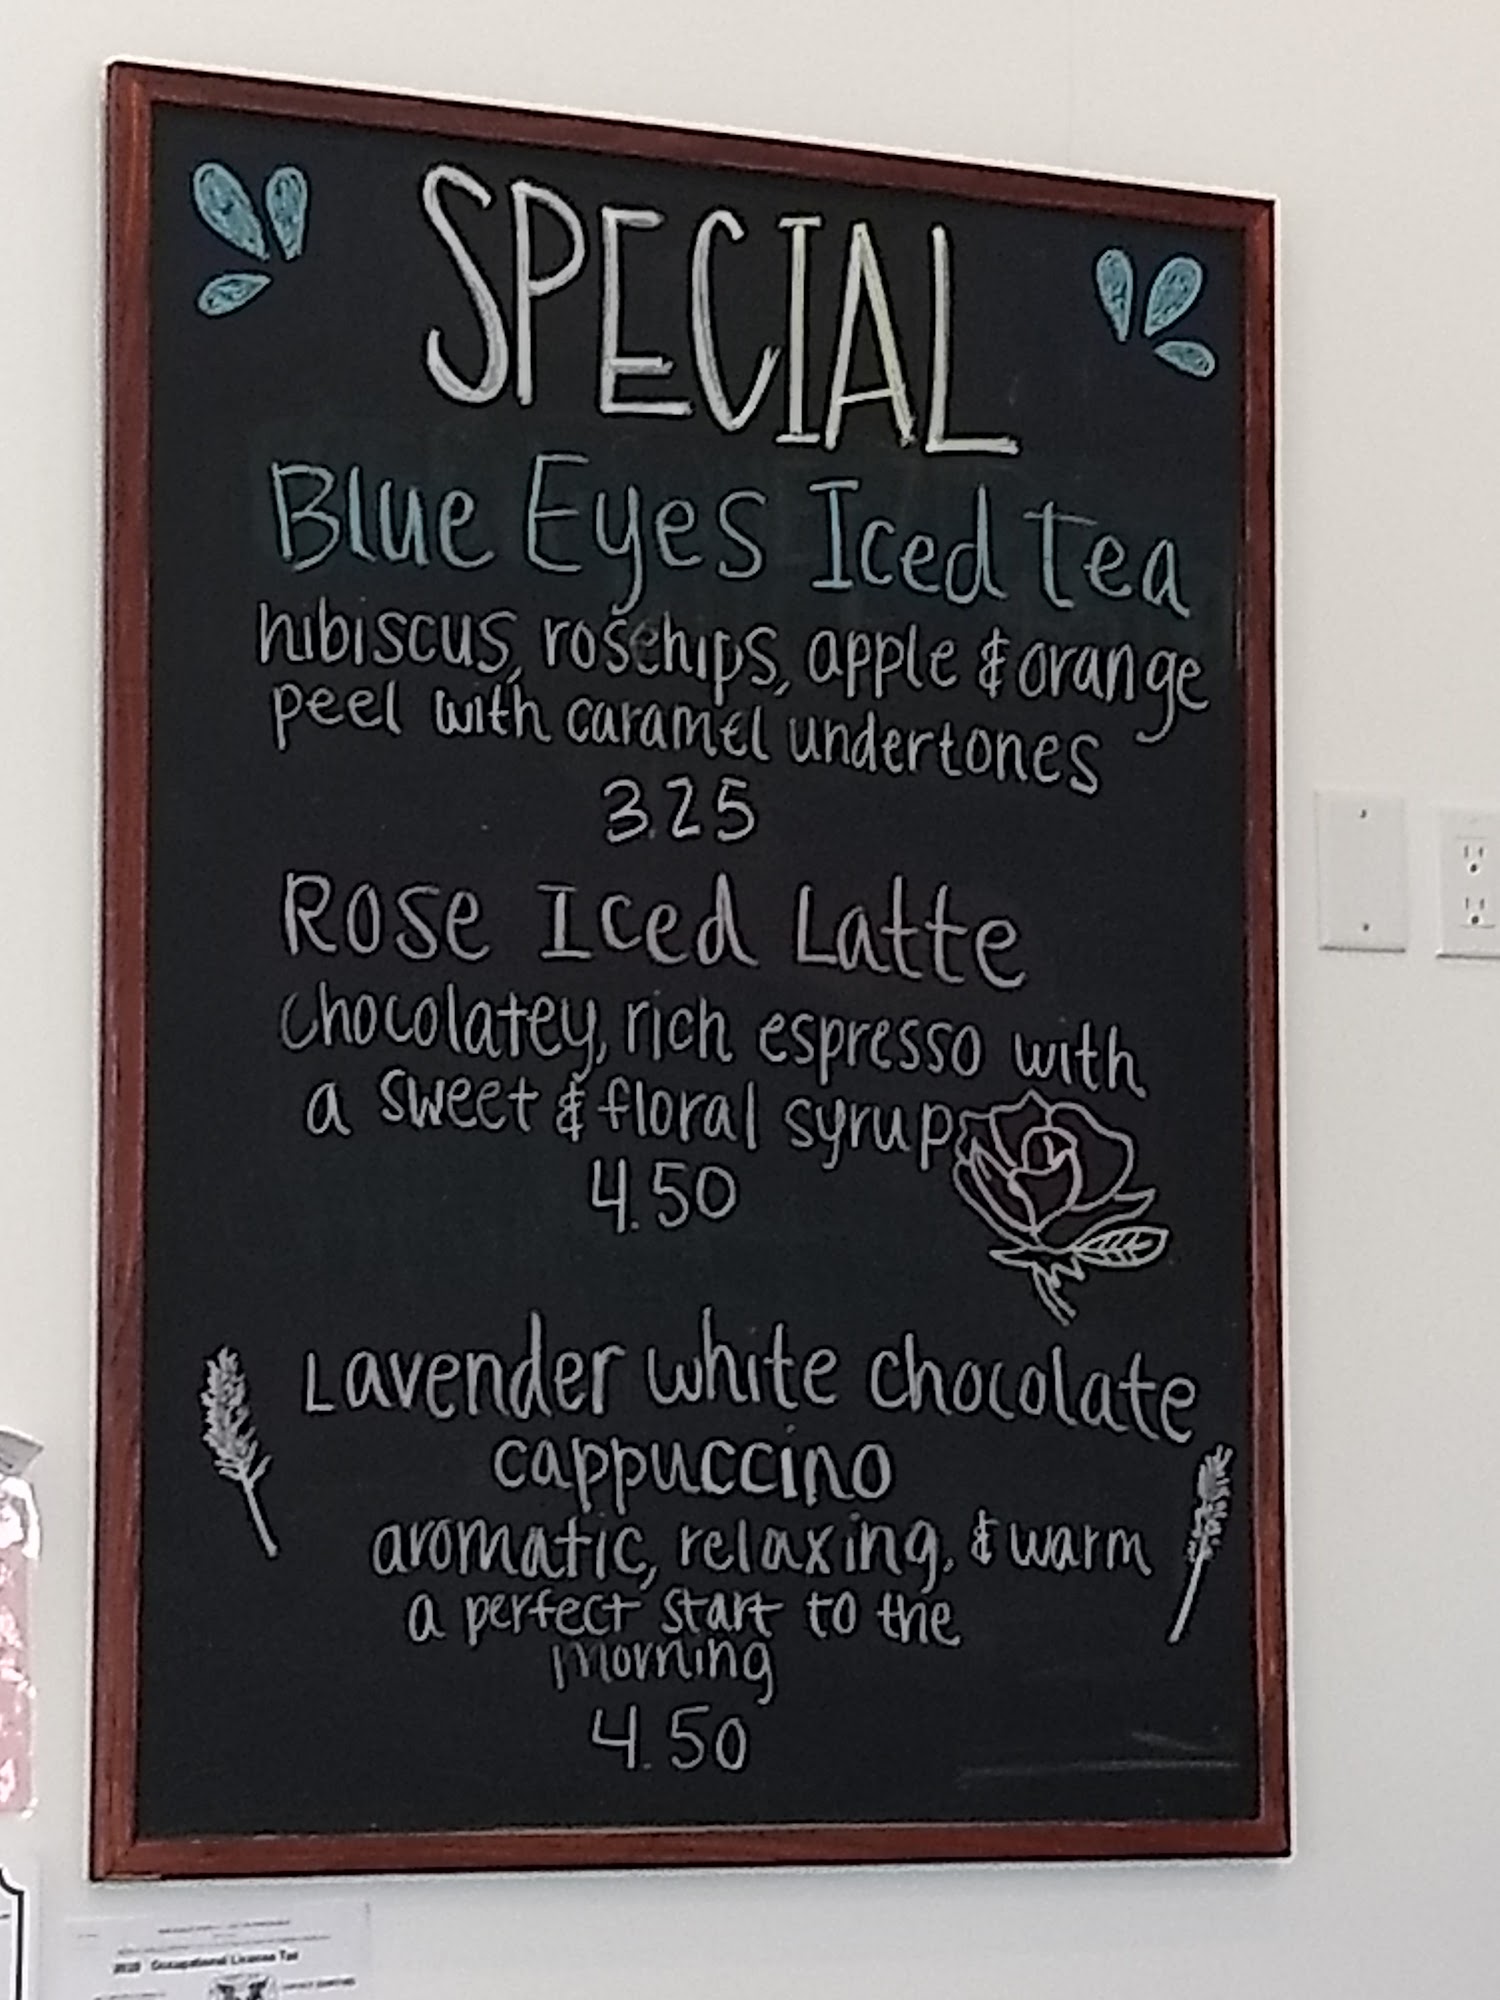 SPECIAL
Blue Eyes Iced tea
hibiscus, rosehips, apple & orange
peel with caramel undertones
3.25
Rose Iced Latte
chocolatey, rich espresso with
a sweet & floral syrup
4.50
Lavender white chocolate
cappuccino
aromatic, relaxing, & warm
a perfect start to the
morning
4.50
Occupational License Tax